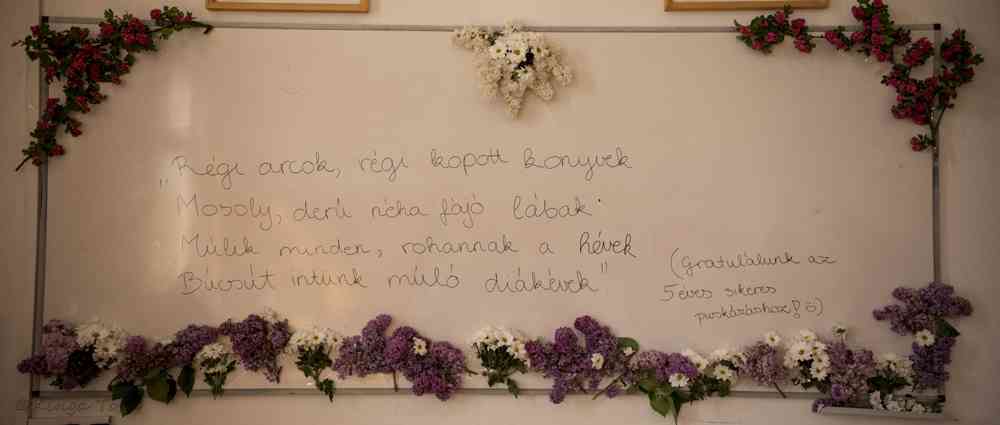 "Régi arcok, régi kopott könyvek
Mosoly, derű néha fájó lábak
Múlik minden, rohannak a hévek
Búcsút intünk múló diákévek"
(Gratulálunk az
5 éves sikeres
puskázáshoz! ö)